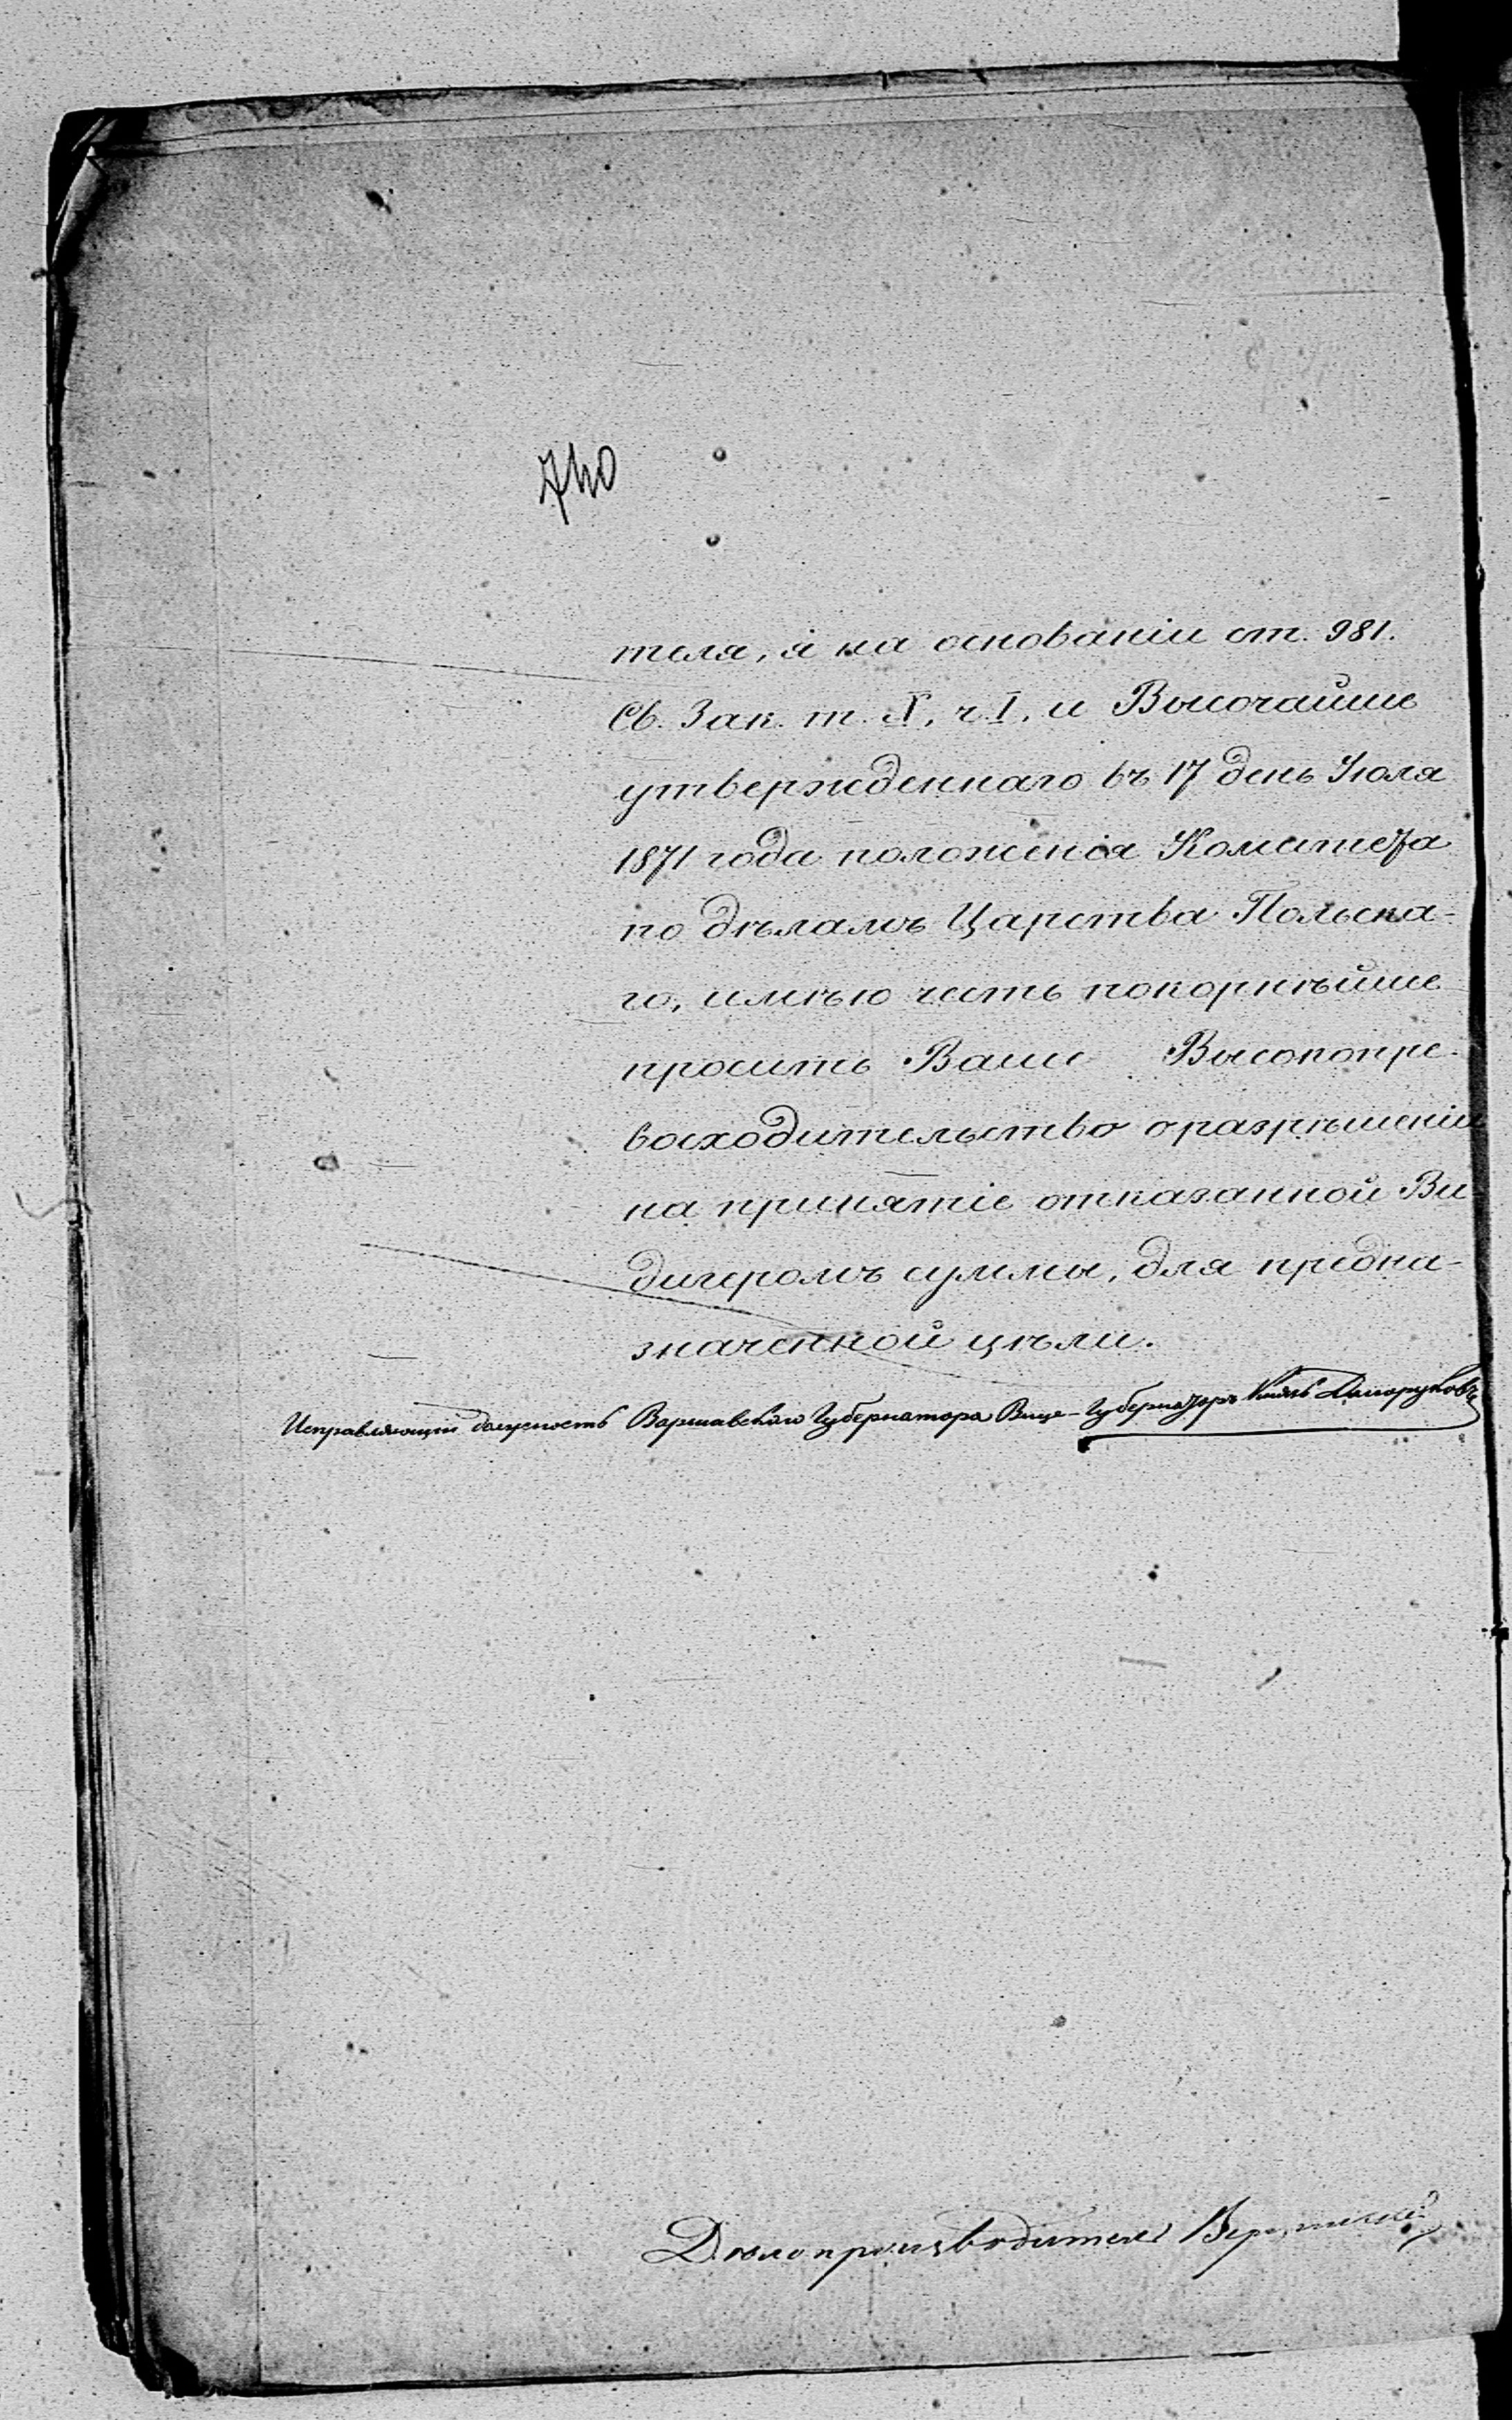 740
теля, я на основаніи ст. 981.
Св. Зак. т. X, ч. I, и Высочайше
утвержденнаго въ 17 день Іюля
1871 года положенія Комитета
по дѣламъ Царства Польска-
го, имѣю честь покорнѣйше
просить Ваше Высокопре-
восходительство о разрѣшеніи
на принятіе отказанной Ви
дигеромъ суммы, для предна-
значенной цѣли.
Исправляющій должность Варшавскаго Губернатора Вице-Губернаторъ Князь Долоруковъ
Дѣлопроизводитель